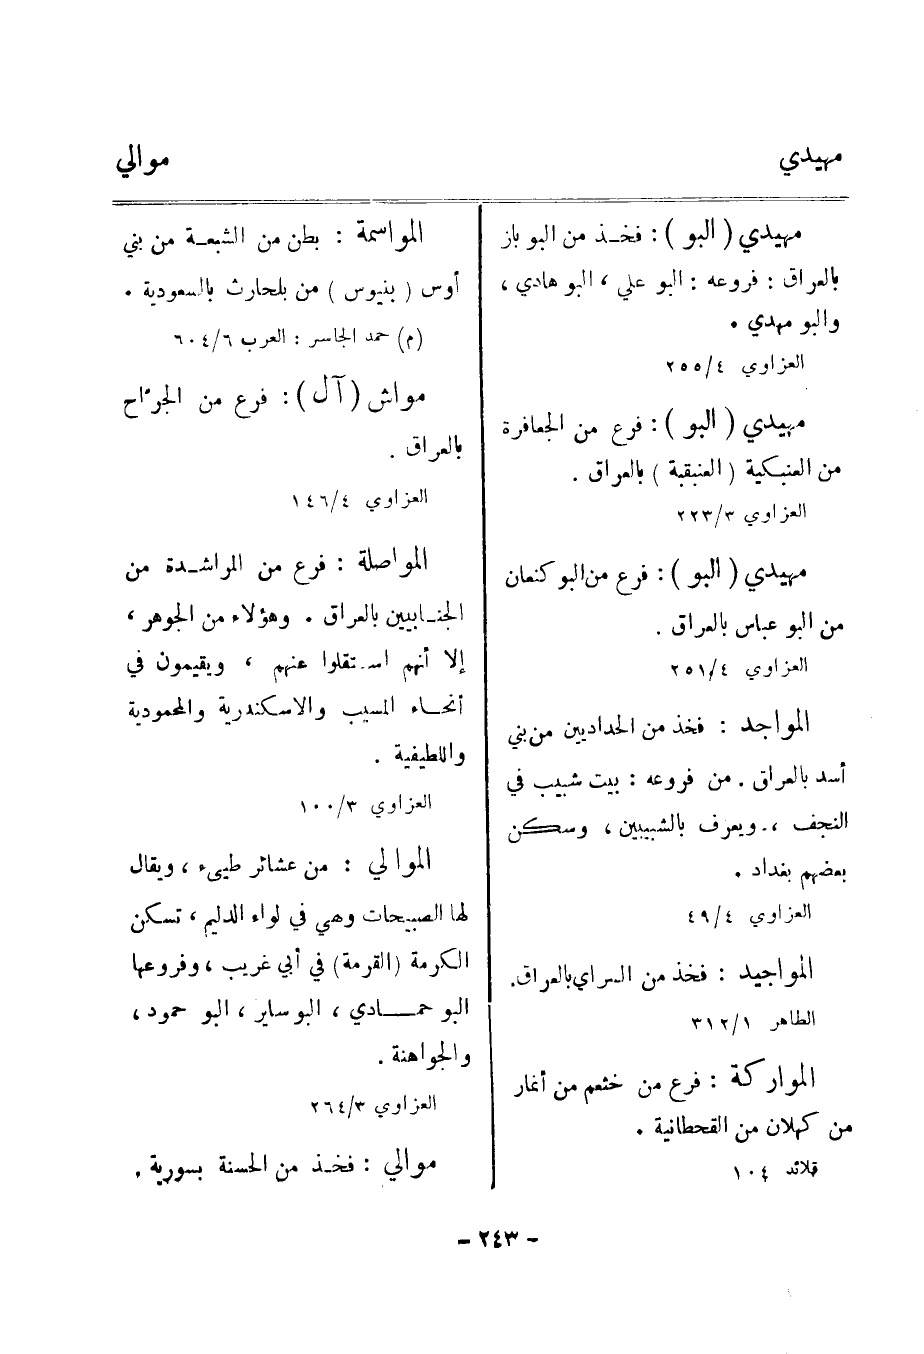 مهيدي
موالي
مهيدي (البو) : فخـذ من البو باز
بالعراق : فروعه : البو علي ، البو هادي ،
والبو مهدي .
العزاوي ٢٥٥/٤
مهيدي (البو) : فرع من الجعافرة
من العنبكية (العنبقية) بالعراق .
العزاوي ٢٢٣/٣
مهيدي (البو) : فرع من البو كنعان
من البو عباس بالعراق .
العزاوي ٢٥١/٤
المواجد : فخذ من الحداديين من بني
أسد بالعراق . من فروعه : بيت شبيب في
النجف ، ويعرف بالشبيبين ، وسكن
بعضهم بغداد .
العزاوي ٤٩/٤
المواجيد : فخذ من السراي بالعراق.
الطاهر ٣١٢/١
المواركة : فرع من خثعم من أنمار
من كهلان من القحطانية .
قلائد ١٠٤
المواسمة : بطن من الشبعـة من بني
أوس (بنيوس) من بلحارث بالسعودية .
(م) حمد الجاسر : العرب ٦٠٤/٦
مواش (آل) : فرع من الجرّاح
بالعراق .
العزاوي ١٤٦/٤
المواصلة : فرع من المراشـدة من
الجنـابيين بالعراق . وهؤلاء من الجوهر ،
إلا أنهم استقلوا عنهم ، ويقيمون في
أنحـاء المسيب والاسكندرية والمحمودية
واللطيفية .
العزاوي ١٠٠/٣
الموالي : من عشائر طيىء ، ويقال
لها الصبيحات وهي في لواء الدليم ، تسكن
الكرمة (القرمة) في أبي غريب ، وفروعها
البو حمـادي ، البو ساير ، البو حمود ،
والجواهنة .
العزاوي ٢٦٤/٣
موالي : فخـذ من الحسنة بسورية .
- ٢٤٣ -